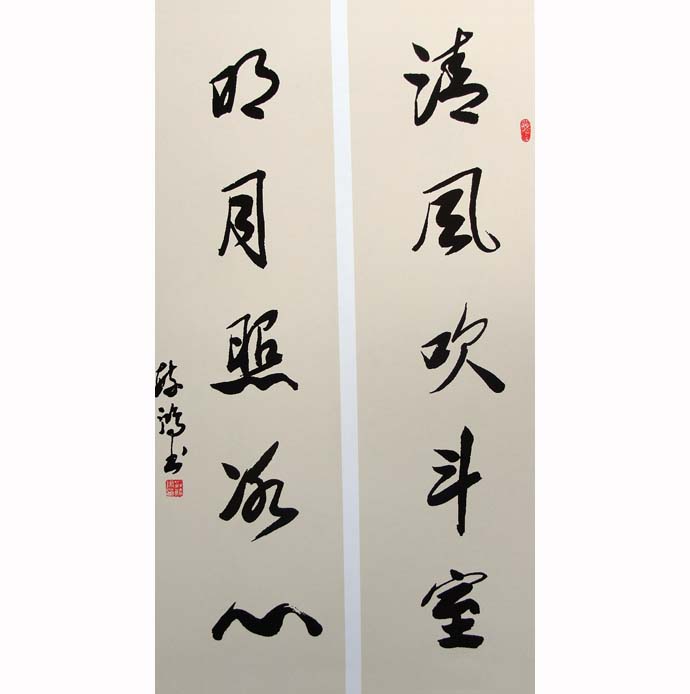 清風吹斗室
明月照冰心